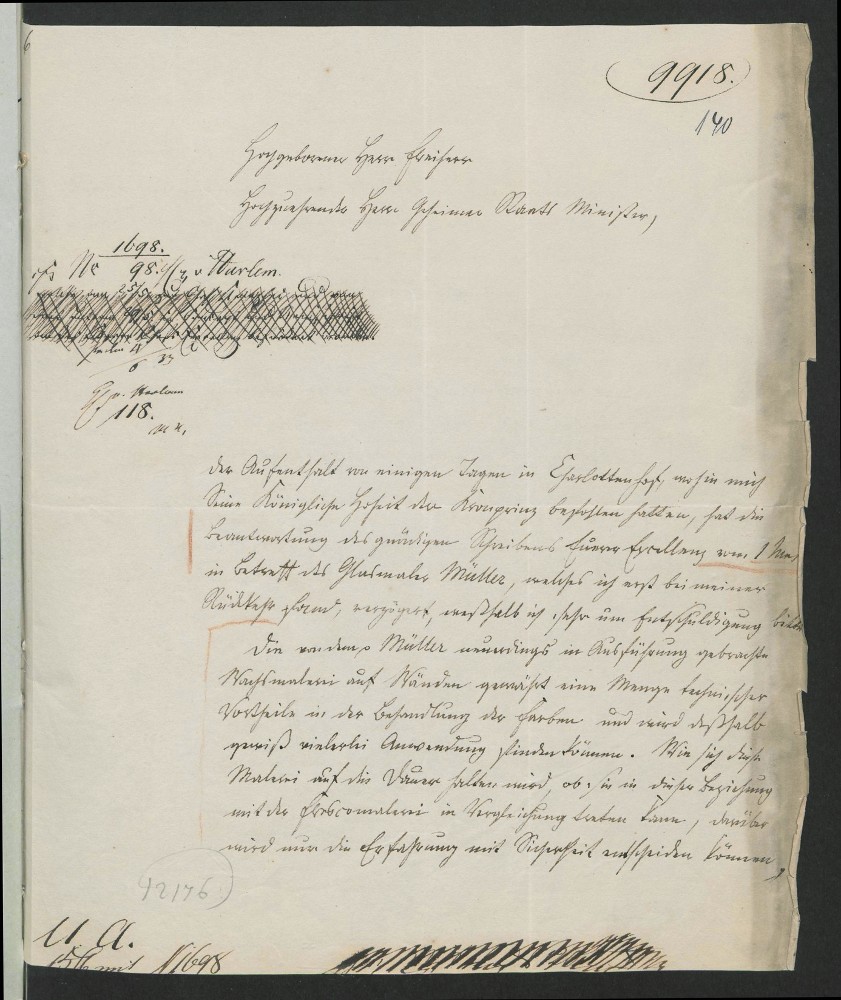 9918.
140
Hochgeborener Herr Freiherr
Hochzuehrender Herr Geheimer Staats Minister,
1698.
No 98. v Harlem.
v. Harlem
118.
der Aufenthalt von einigen Tagen in Charlottenhof, wohin mich
Seine Königliche Hoheit der Kronprinz befohlen hatten, hat die
Beantwortung des gnädigen Schreibens Euerer Excellenz vom 1 Mai
in Betreff des Glasmaler Müller, welches ich erst bei meiner
Rückkehr fand, verzögert, weßhalb ich sehr um Entschuldigung bitte.
Die von dem p Müller neuerdings in Ausführung gebrachte
Wachsmalerei auf Wänden gewährt eine Menge technischer
Vortheile in der Behandlung der Farben und wird deßhalb
gewiß vielerlei Anwendung finden können. Wie sich diese
Malerei auf die Dauer halten wird, ob sie in dieser Beziehung
mit der Frescomalerei in Vergleichung treten kann, darüber
wird nur die Erfahrung mit Sicherheit entscheiden können,
12176
U. A.
mit N 1698